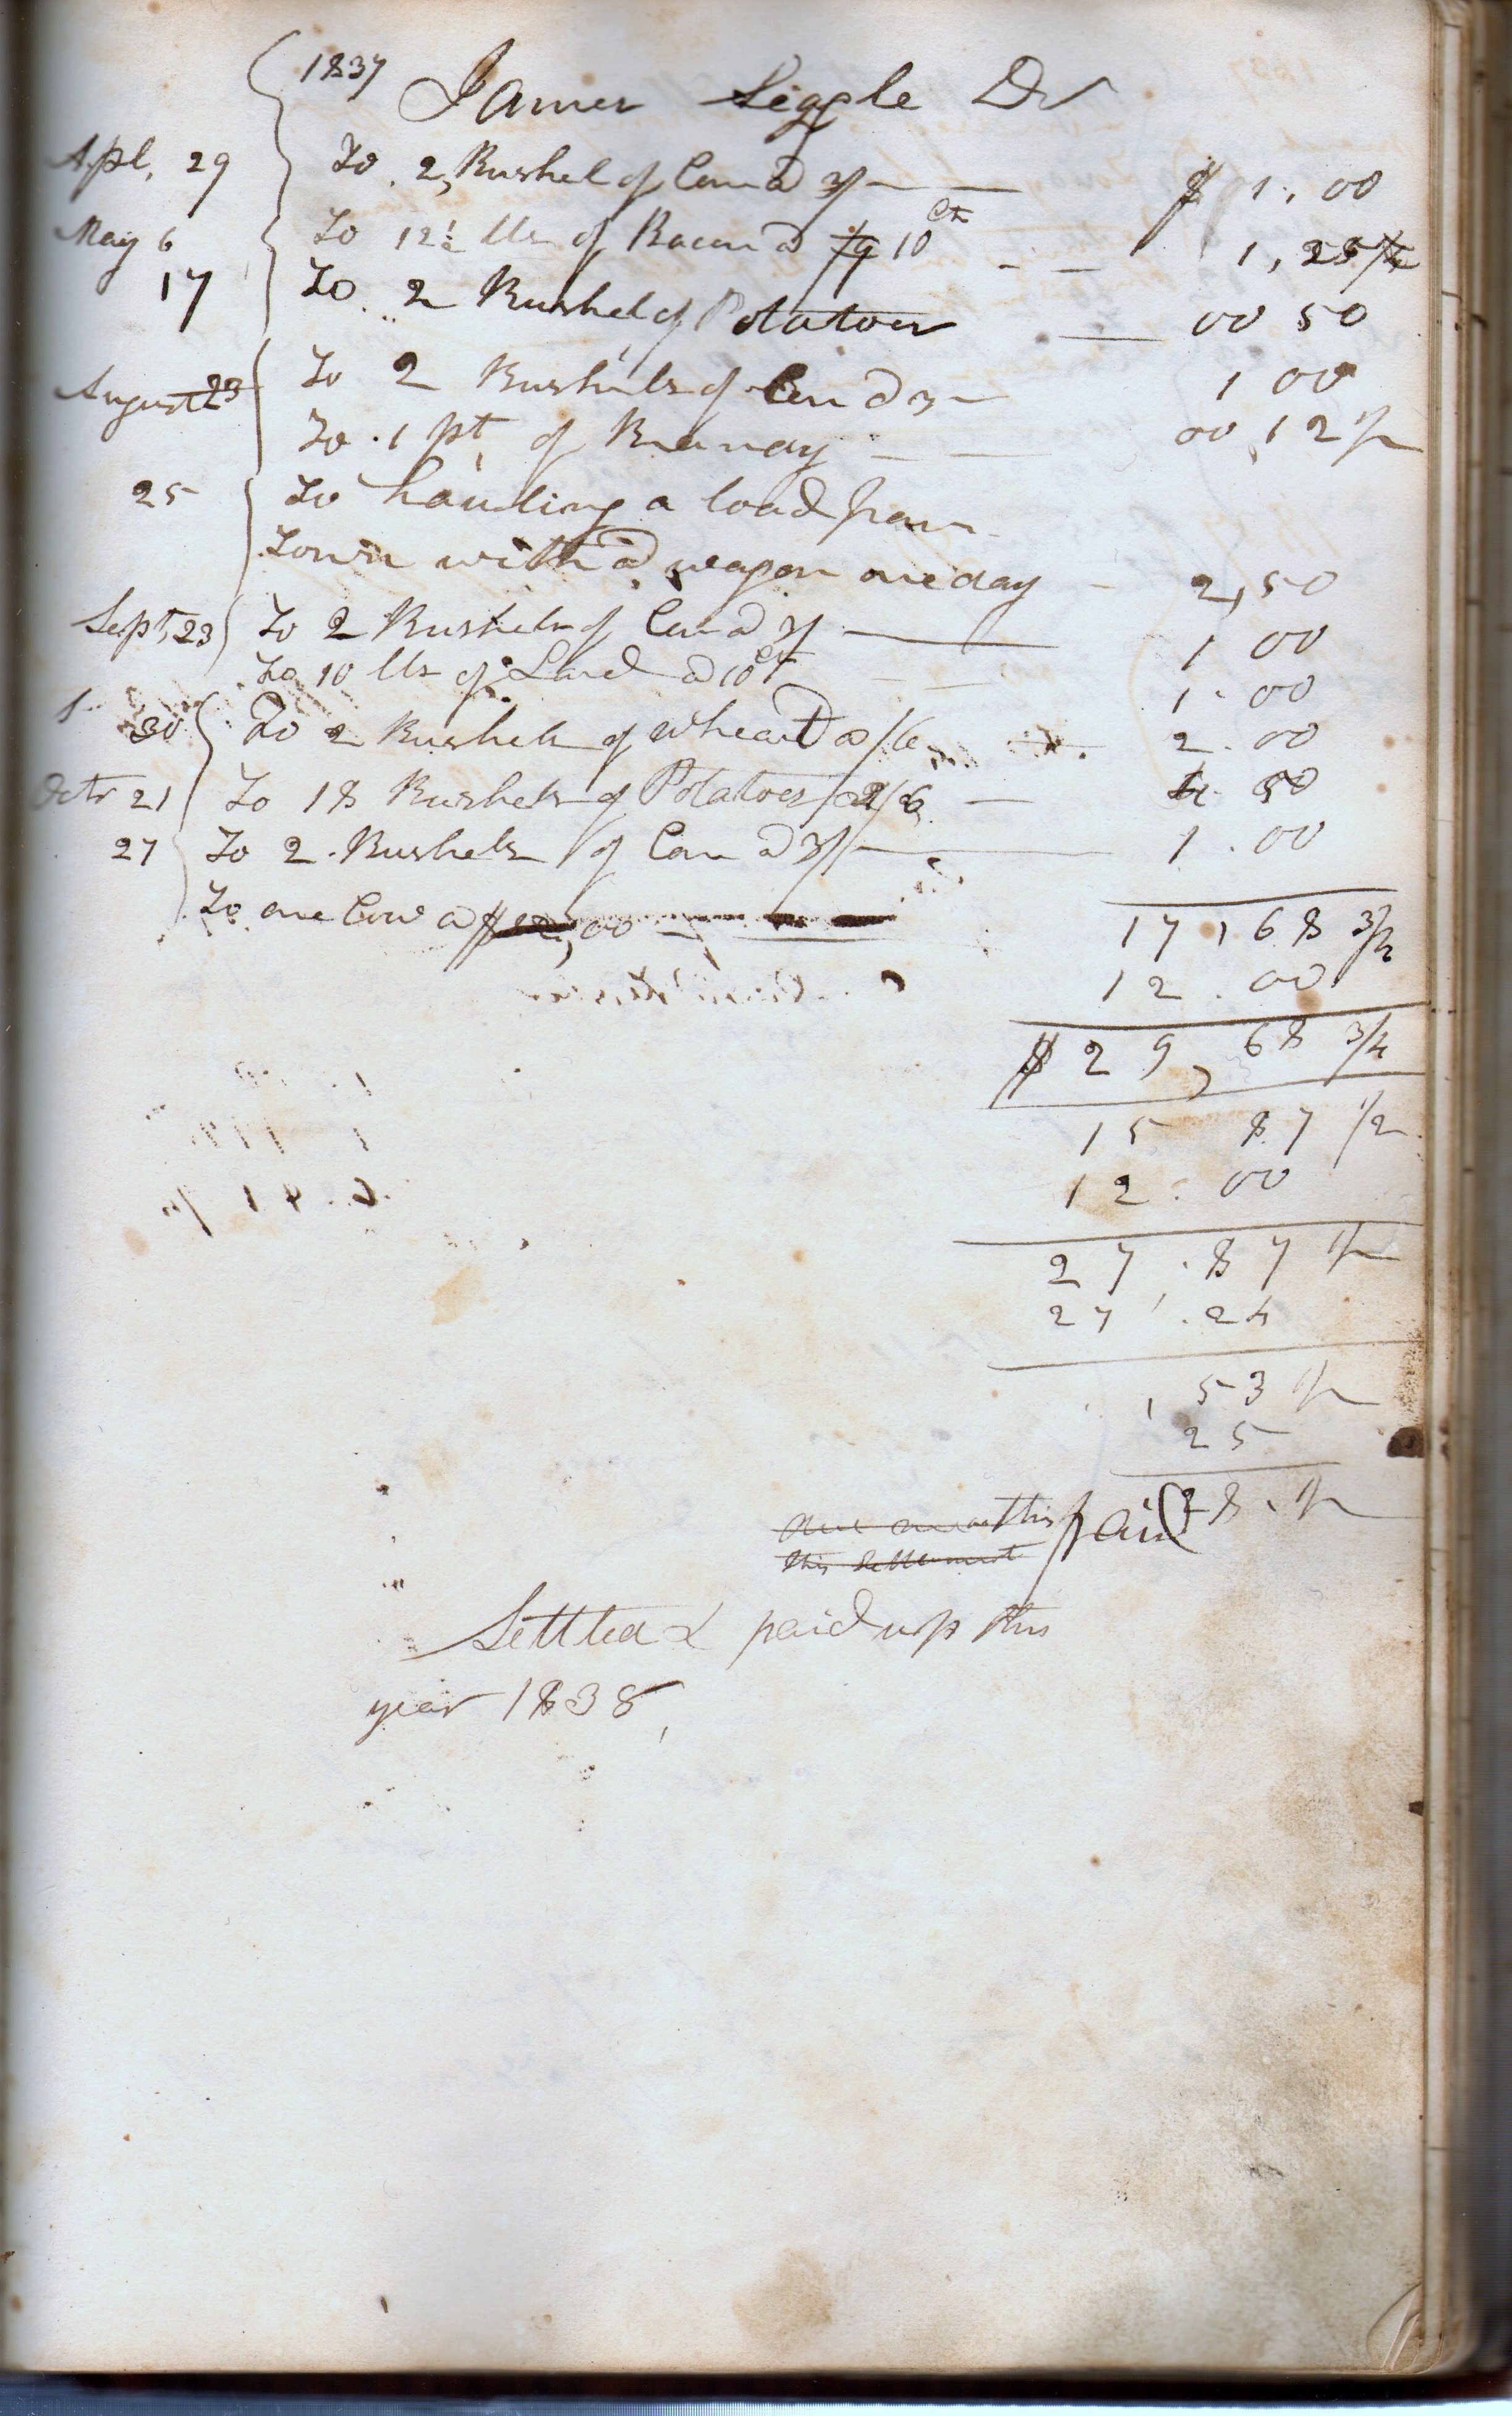 1837 James Siggle Dr
Apl, 29 To 2, Bushel of Corn @ 3/ $ 1,00
May 6 To 12½ lbs of Bacon @ 10 Cts 1,25
17 To 2 Bushel of Potatoes 00 50
August 23 To 2 Bushels of Corn @ 3 1 00
To 1 pt of Brandy 00,12 1/2
25 To hauling a load from
Town with a wagon one day 2,50
Sept, 23 To 2 Bushels of Corn @ 3/ 1 00
To 10 lbs of Lard @ 10 ct 1.00
30 To 2 Bushels of wheat @ /6 2.00
Octr 21 To 18 Bushels of Potatoes @ 2/6 4 50
27 To 2 Bushels of Corn @ 3/ 1.00
To one Cow @ $ ,00
17,68 3/4
12.00
$ 29,68 3/4
15 87 1/2
12.00
27.87 1/2
27.24
,53 1/2
25
28.1/2
this paid
this Settlement
Settled & paid up this
year 1838,